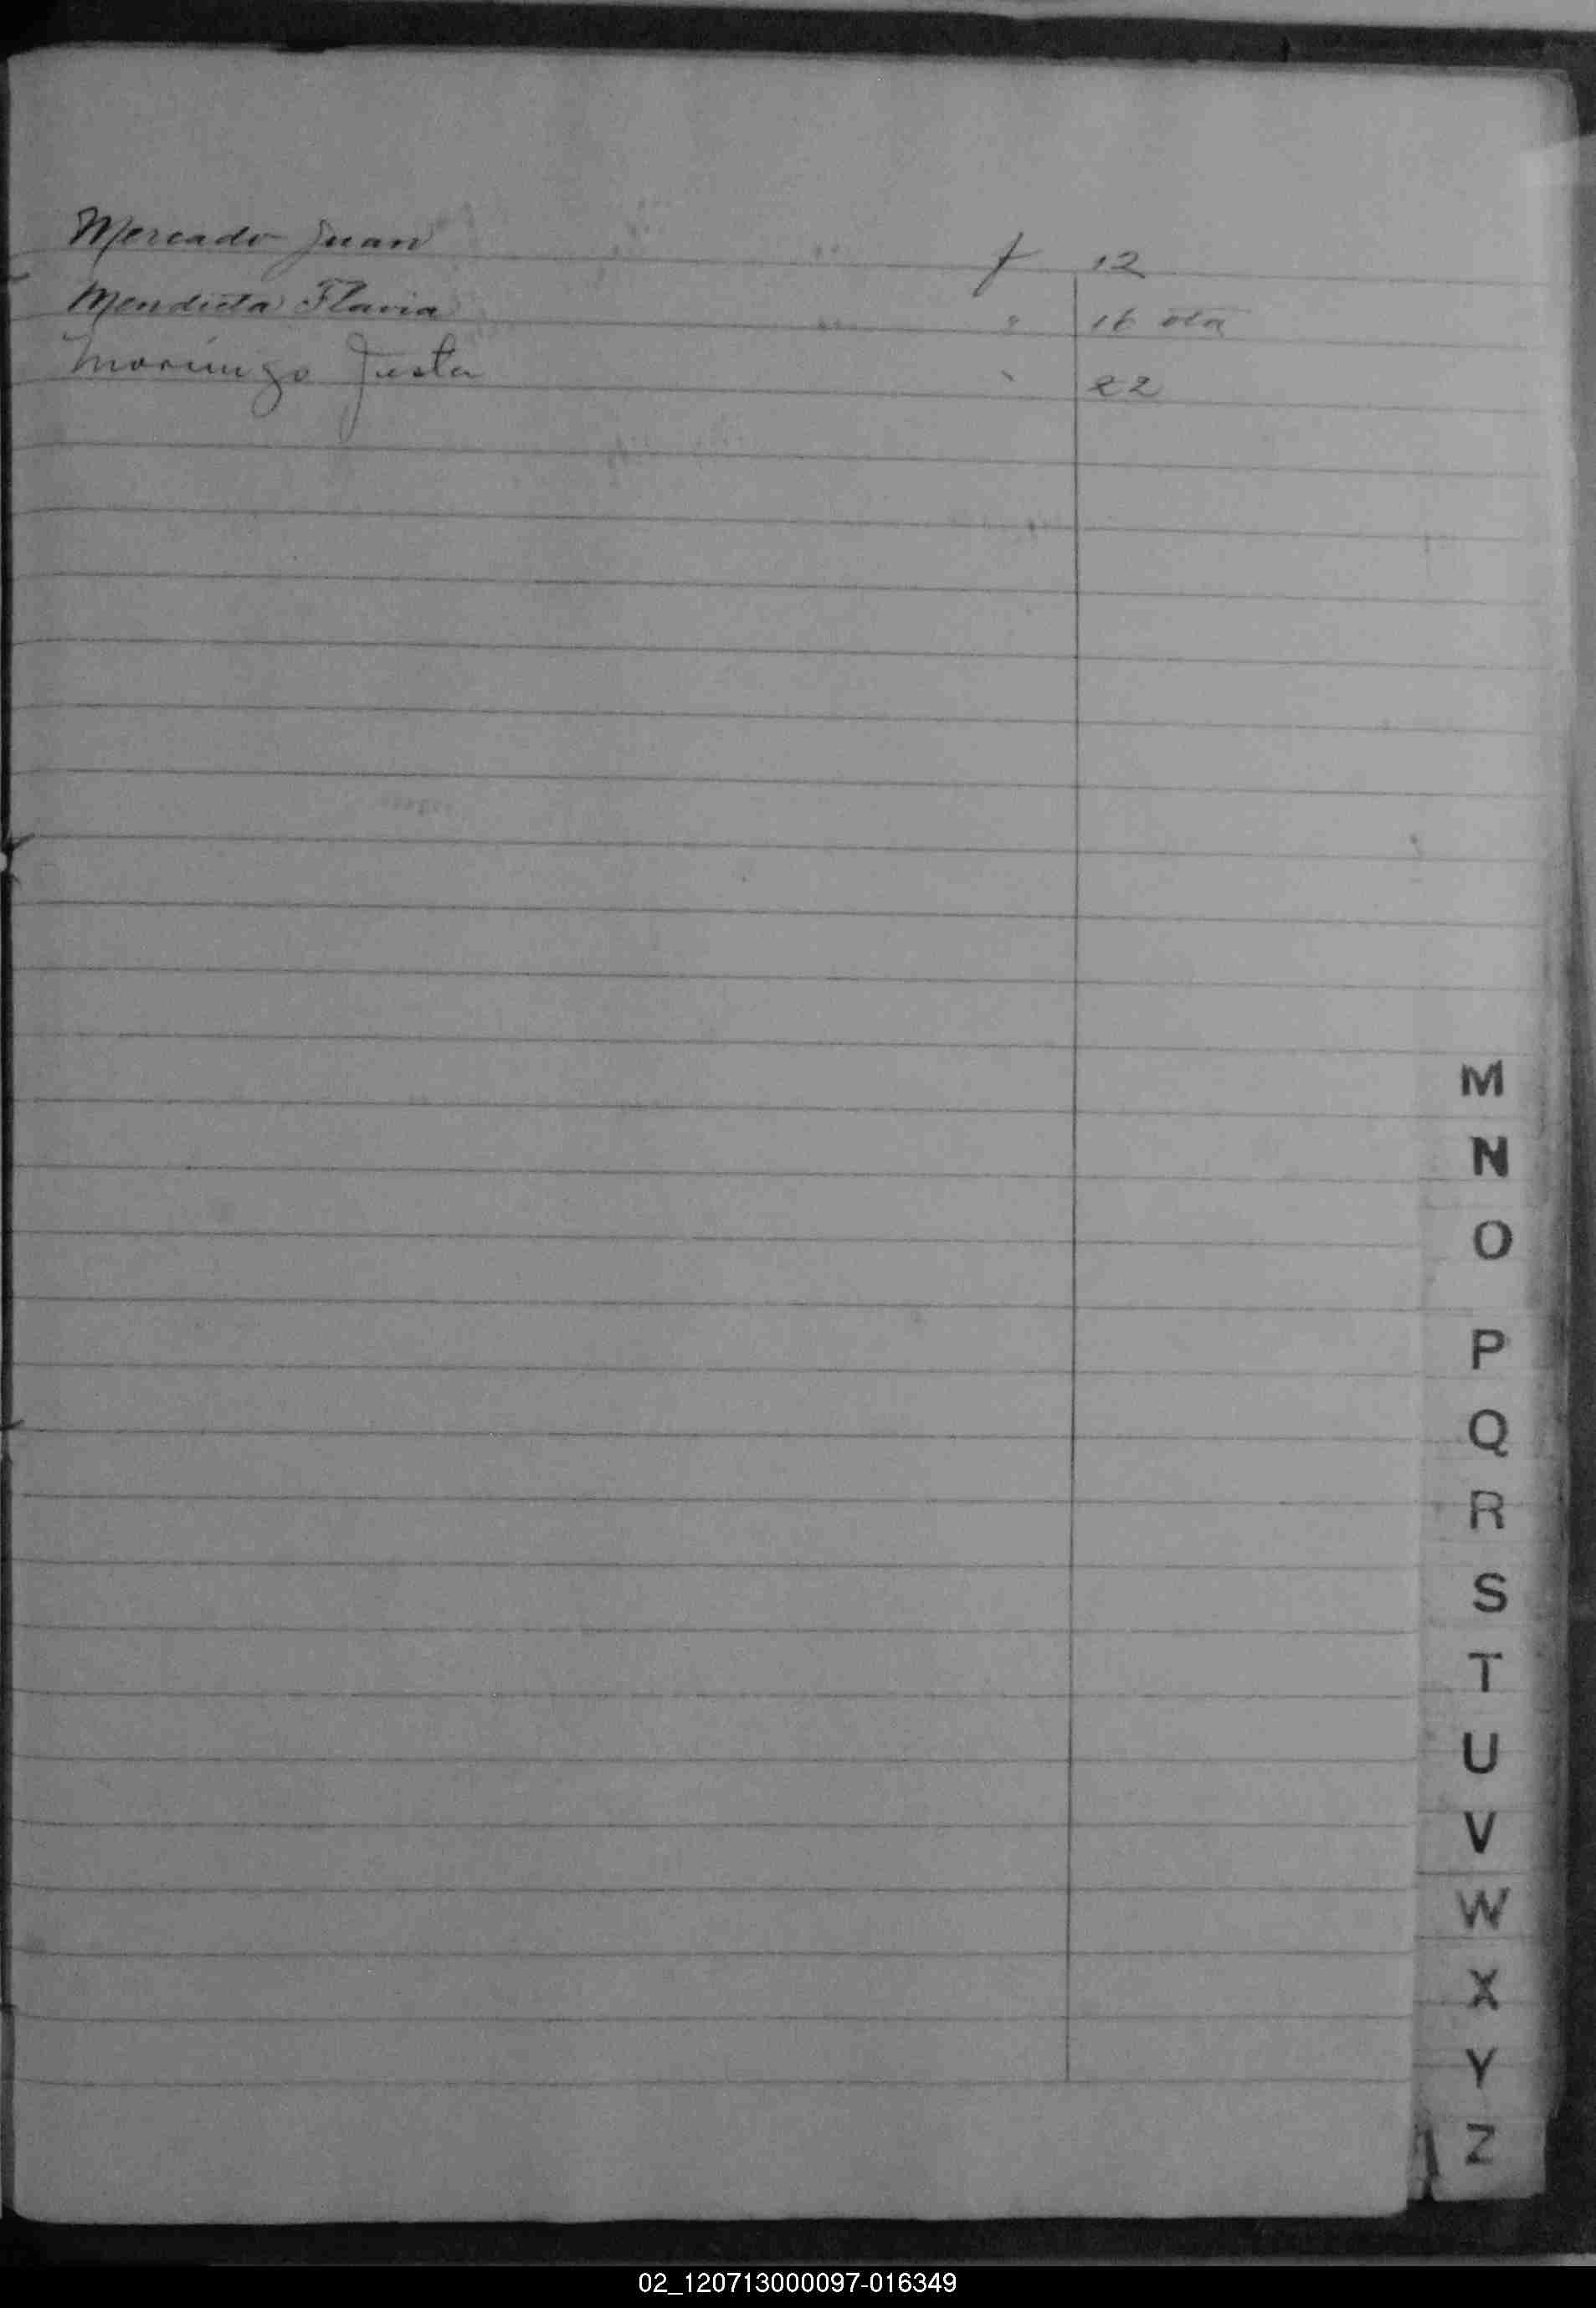 Mercado Juan f 12
Mendieta Flavia " 16 vta
Morinigo Justa " 22
M
N
O
P
Q
R
S
T
U
V
W
X
Y
Z
02_120713000097-016349